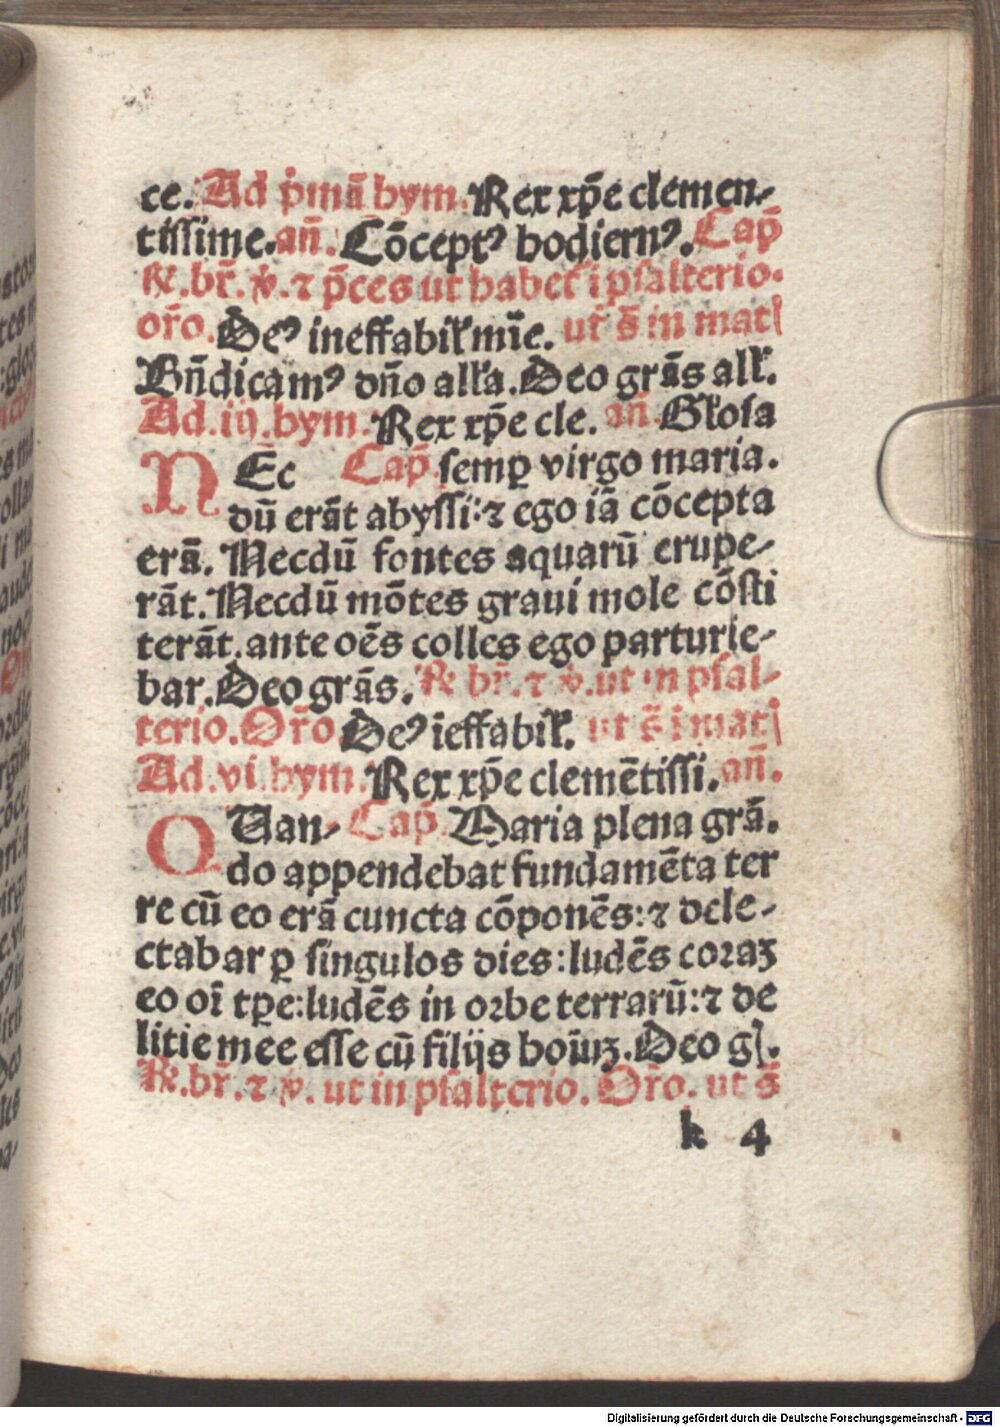 ce. Ad p̄mā hym. Rex xp̄e clemen-
tissime. añ. Cōceptꝰ hodiernꝰ. Cap̄
℟. br̄. ℣. ⁊ p̄ces ut habeſ i pſalterio.
or̄o. Deꝰ ineffabil̄ mīe. ut s̄ in mati
Bn̄dicamꝰ dn̄o all̄a. Deo grās all̄.
Ad. iij. hym. Rex xp̄e cle. añ. Gl̄osa
NEc Cap̄. semꝑ virgo maria.
dū erāt abyssi: ⁊ ego iā cōcepta
erā. Necdū fontes aquarū erupe-
rāt. Necdū mōtes graui mole cōsti
terāt. ante oēs colles ego parturie-
bar. Deo grās. ℟. br̄. ⁊ ℣. ut in psal-
terio. Or̄o. Deꝰ īeffabil̄. ut s̄ i mati
Ad. vi. hym. Rex xp̄e clemētissi. añ.
QUan- Cap̄. Maria plena grā.
do appendebat fundamēta ter
re cū eo erā cuncta cōponēs: ⁊ dele-
ctabar ꝑ singulos dies: ludēs coraꝫ
eo oī tp̄e: ludēs in orbe terrarū: ⁊ de
litie mee esse cū filijs hoīuꝫ. Deo gſ.
℟. br̄. ⁊ ℣. ut in psalterio. Or̄o. ut s̄
k 4
Digitalisierung gefördert durch die Deutsche Forschungsgemeinschaft - DFG